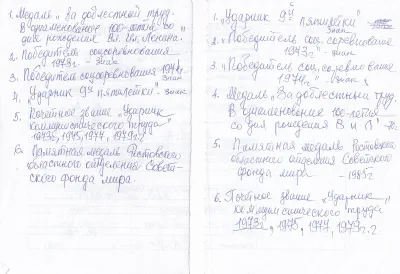 1. Медаль „За доблестный труд.
В ознаменование 100-летия со
дня рождения Вл. Ил. Ленина.
2. Победитель соцсоревнования
1973г. - Знак
3. Победитель соцсоревнования 1974г.
знак
4. Ударник 9й пятилетки" - знак
5. Почетное звание „Ударник
коммунистического труда"
1973г, 1975, 1977, 1979г.г.
6. Памятная медаль Ростовского
областного отделения Совет-
ского фонда мира.
1. „Ударник 9й пятилетки"
знак
2. „Победитель соц. соревнования
1973г" - знак
3. „Победитель соц. соревнования
1974г." - знак
4. Медаль „За доблестный труд
В ознаменование 100-летия
со дня рождения В И Л"
5. Памятная медаль Ростовского
областного отделения Советского
фонда мира - 1985г
6. Почетное звание „Ударник
коммунистического труда
1973г, 1975, 1977, 1979г.г.